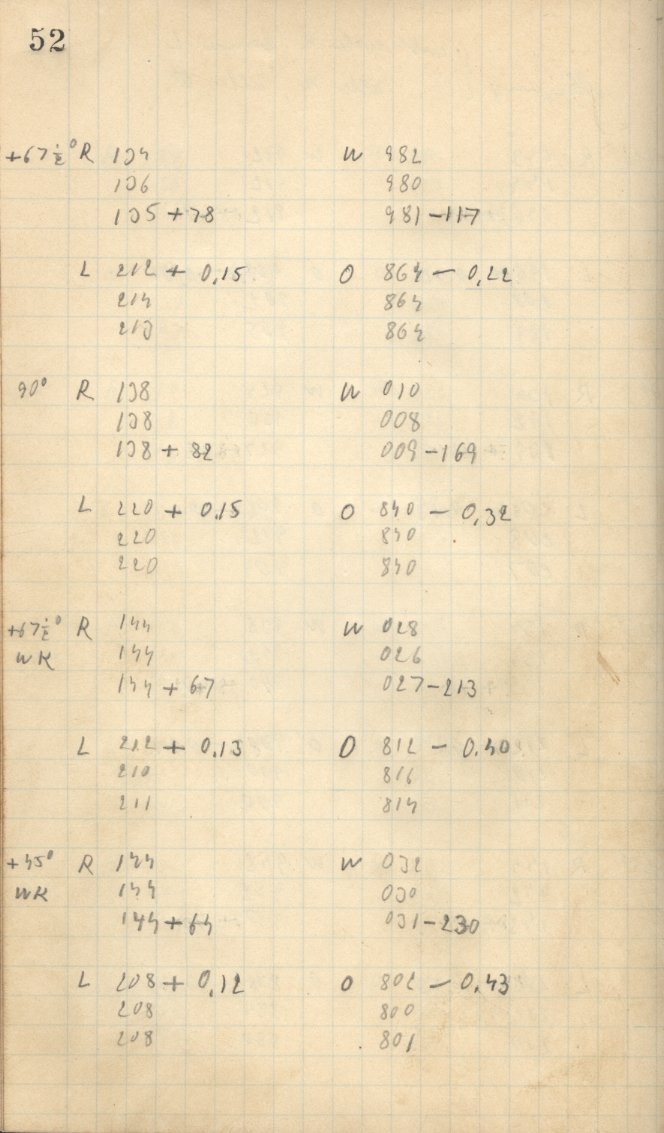 52
+67½° R 134 W 982
136 980
135 + 78 981 - 117
L 212 + 0,15 O 864 - 0,22
214 864
213 864
90° R 138 W 010
138 008
138 + 82 009 - 169
L 220 + 0.15 O 840 - 0,32
220 840
220 840
+67½° R 144 W 028
WK 144 026
144 + 67 027 - 213
L 212 + 0,13 O 812 - 0.40
210 816
211 814
+45° R 144 W 032
WK 144 030
144 + 64 031 - 230
L 208 + 0,12 O 802 - 0.43
208 800
208 801